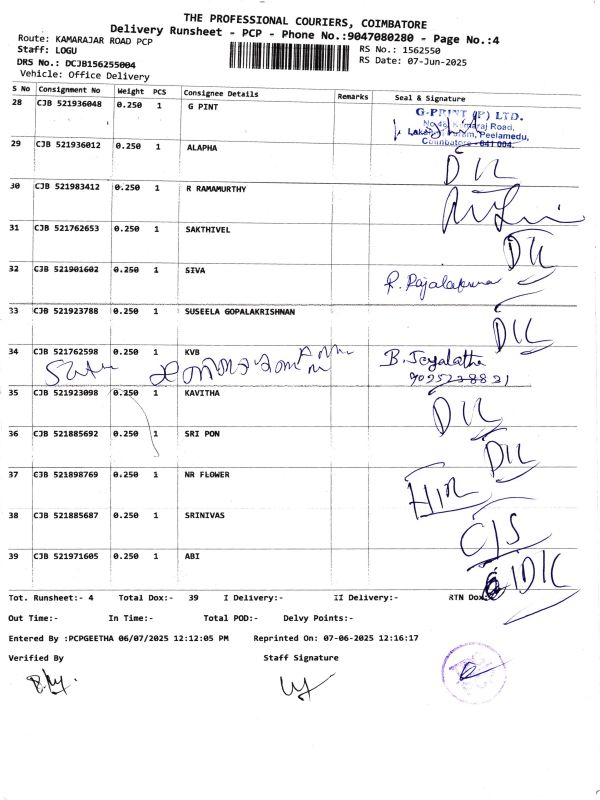 THE PROFESSIONAL COURIERS, COIMBATORE
Delivery Runsheet - PCP - Phone No.:9047080280 - Page No.:4
Route: KAMARAJAR ROAD PCP
Staff: LOGU
RS No.: 1562550
DRS No.: DCJB156255004
RS Date: 07-Jun-2025
Vehicle: Office Delivery
S No Consignment No Weight PCS Consignee Details Remarks Seal & Signature
28 CJB 521936048 0.250 1 G PINT
G-PRINT (P) LTD.
Peelamedu,
Coimbatore - 641 004.
29 CJB 521936012 0.250 1 ALAPHA
DIL
30 CJB 521983412 0.250 1 R RAMAMURTHY
31 CJB 521762653 0.250 1 SAKTHIVEL
DIL
32 CJB 521901602 0.250 1 SIVA
33 CJB 521923788 0.250 1 SUSEELA GOPALAKRISHNAN
DIL
34 CJB 521762598 0.250 1 KVB
B. Jeyalatha
35 CJB 521923098 0.250 1 KAVITHA
DIL
36 CJB 521885692 0.250 1 SRI PON
DIL
37 CJB 521898769 0.250 1 NR FLOWER
38 CJB 521885687 0.250 1 SRINIVAS
C/S
39 CJB 521971605 0.250 1 ABI
Tot. Runsheet:- 4 Total Dox:- 39 I Delivery:- II Delivery:- RTN Dox:-
Out Time:- In Time:- Total POD:- Delvy Points:-
Entered By :PCPGEETHA 06/07/2025 12:12:05 PM Reprinted On: 07-06-2025 12:16:17
Verified By Staff Signature